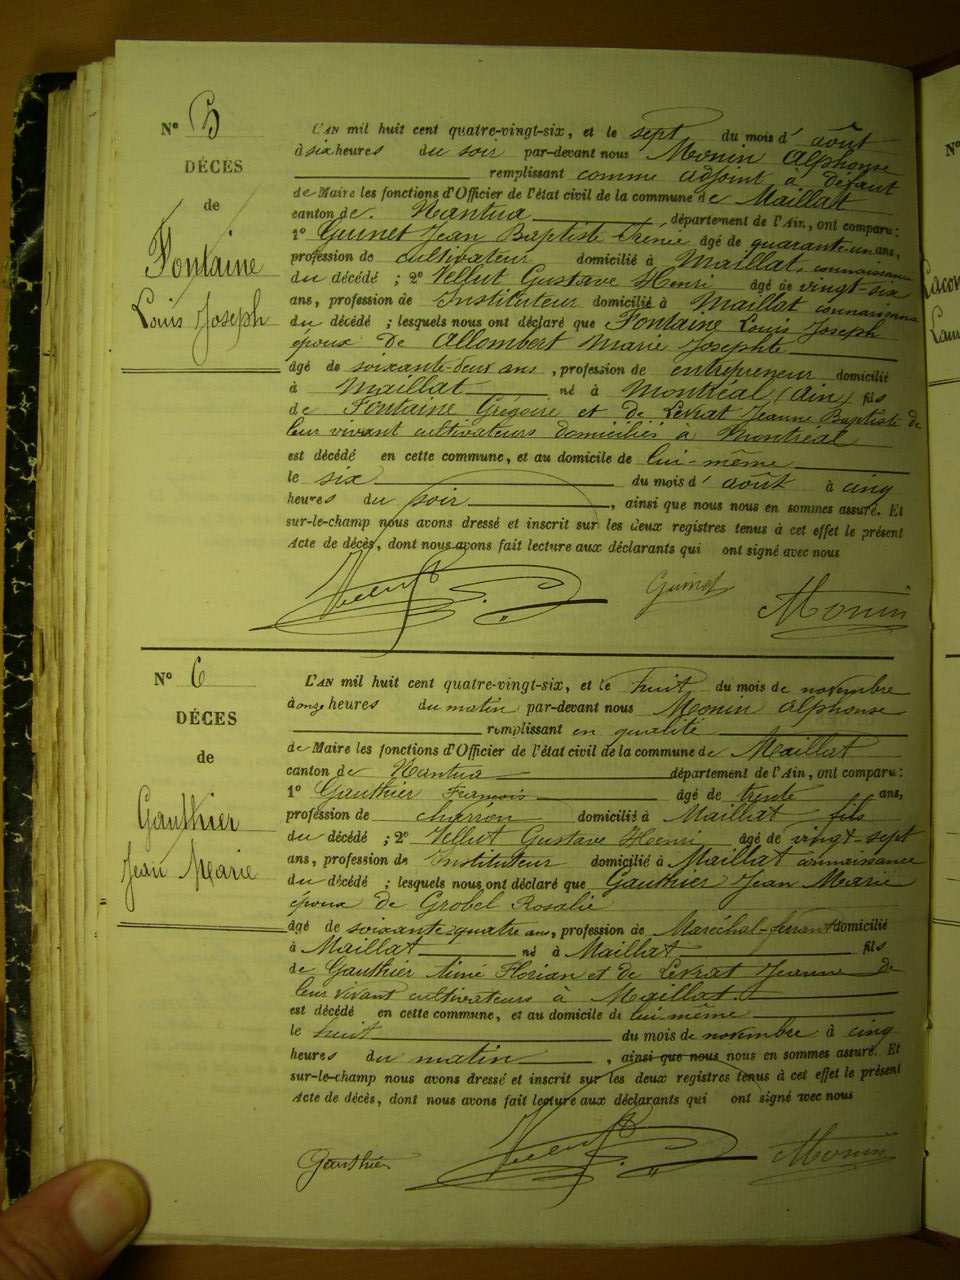 N° 5
DÉCES
de
Fontaine
Louis Joseph
L'AN mil huit cent quatre-vingt-six, et le sept du mois d'août
à six heures du soir par-devant nous Monin Alphonse
remplissant comme adjoint à défaut
de Maire les fonctions d'Officier de l'état civil de la commune de Maillat
canton de Nantua département de l'Ain, ont comparu:
1° Guinet Jean Baptiste Irénée âgé de quarante un ans,
profession de cultivateur domicilié à Maillat, connaissance
du décédé ; 2° Vellut Gustave Henri âgé de vingt-six
ans, profession de Instituteur domicilié à Maillat connaissance
du décédé ; lesquels nous ont déclaré que Fontaine Louis Joseph
époux de Allombert Marie Josephte
âgé de soixante-deux ans, profession de entrepreneur domicilié
à Maillat né à Montréal (Ain) fils
de Fontaine Grégoire et de Levrat Jeanne Baptiste de
leur vivant cultivateurs domiciliés à Montréal
est décédé en cette commune, et au domicile de lui-même
le six du mois d'août à cinq
heures du soir, ainsi que nous nous en sommes assuré. Et
sur-le-champ nous avons dressé et inscrit sur les deux registres tenus à cet effet le présent
Acte de décès, dont nous avons fait lecture aux déclarants qui ont signé avec nous
Vellut Guinet Monin
N° 6
DÉCES
de
Gauthier
Jean Marie
L'AN mil huit cent quatre-vingt-six, et le huit du mois de novembre
à onze heures du matin par-devant nous Monin Alphonse
remplissant en qualité
de Maire les fonctions d'Officier de l'état civil de la commune de Maillat
canton de Nantua département de l'Ain, ont comparu:
1° Gauthier François âgé de trente ans,
profession de charron domicilié à Maillat fils
du décédé ; 2° Vellut Gustave Henri âgé de vingt-sept
ans, profession de Instituteur domicilié à Maillat connaissance
du décédé ; lesquels nous ont déclaré que Gauthier Jean Marie
époux de Grobel Rosalie
âgé de soixante-quatre ans, profession de Maréchal-ferrant domicilié
à Maillat né à Maillat fils
de Gauthier Aimé Florian et de Levrat Jeanne de
leur vivant cultivateurs à Maillat.
est décédé en cette commune, et au domicile de lui-même
le huit du mois de novembre à cinq
heures du matin, ainsi que nous nous en sommes assuré. Et
sur-le-champ nous avons dressé et inscrit sur les deux registres tenus à cet effet le présent
Acte de décès, dont nous avons fait lecture aux déclarants qui ont signé avec nous
Gauthier Vellut Monin